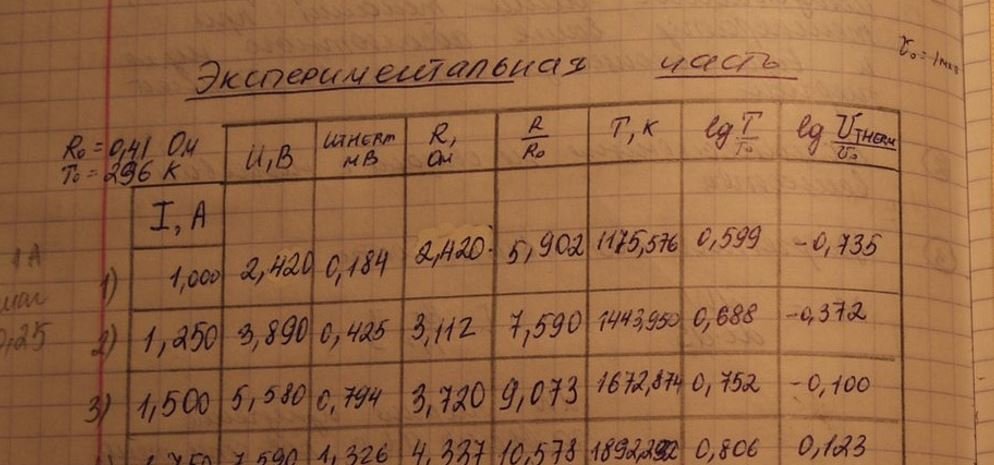 Экспериментальная часть
V₀ = 1мкв
R₀ = 0,41 Ом
T₀ = 296 K
U, В | Uтнегм мВ | R, Ом | R/R₀ | T, К | lg T/T₀ | lg UTHERM/U₀
I, A
1) 1,000 | 2,420 | 0,184 | 2,420 | 5,902 | 1175,576 | 0,599 | -0,735
2) 1,250 | 3,890 | 0,425 | 3,112 | 7,590 | 1443,950 | 0,688 | -0,372
3) 1,500 | 5,580 | 0,794 | 3,720 | 9,073 | 1672,874 | 0,752 | -0,100
1,750 | 7,590 | 1,326 | 4,337 | 10,578 | 0,806 | 0,123